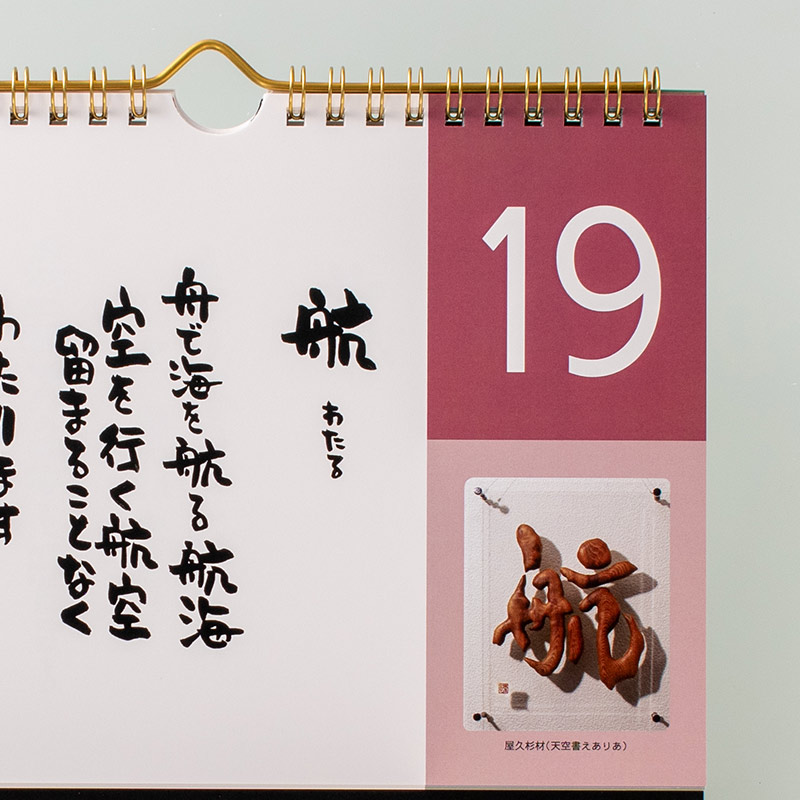 19
航
わたる
舟で海を航る航海
空を行く航空
留まることなく
わたります
航
屋久杉材（天空書えありあ）